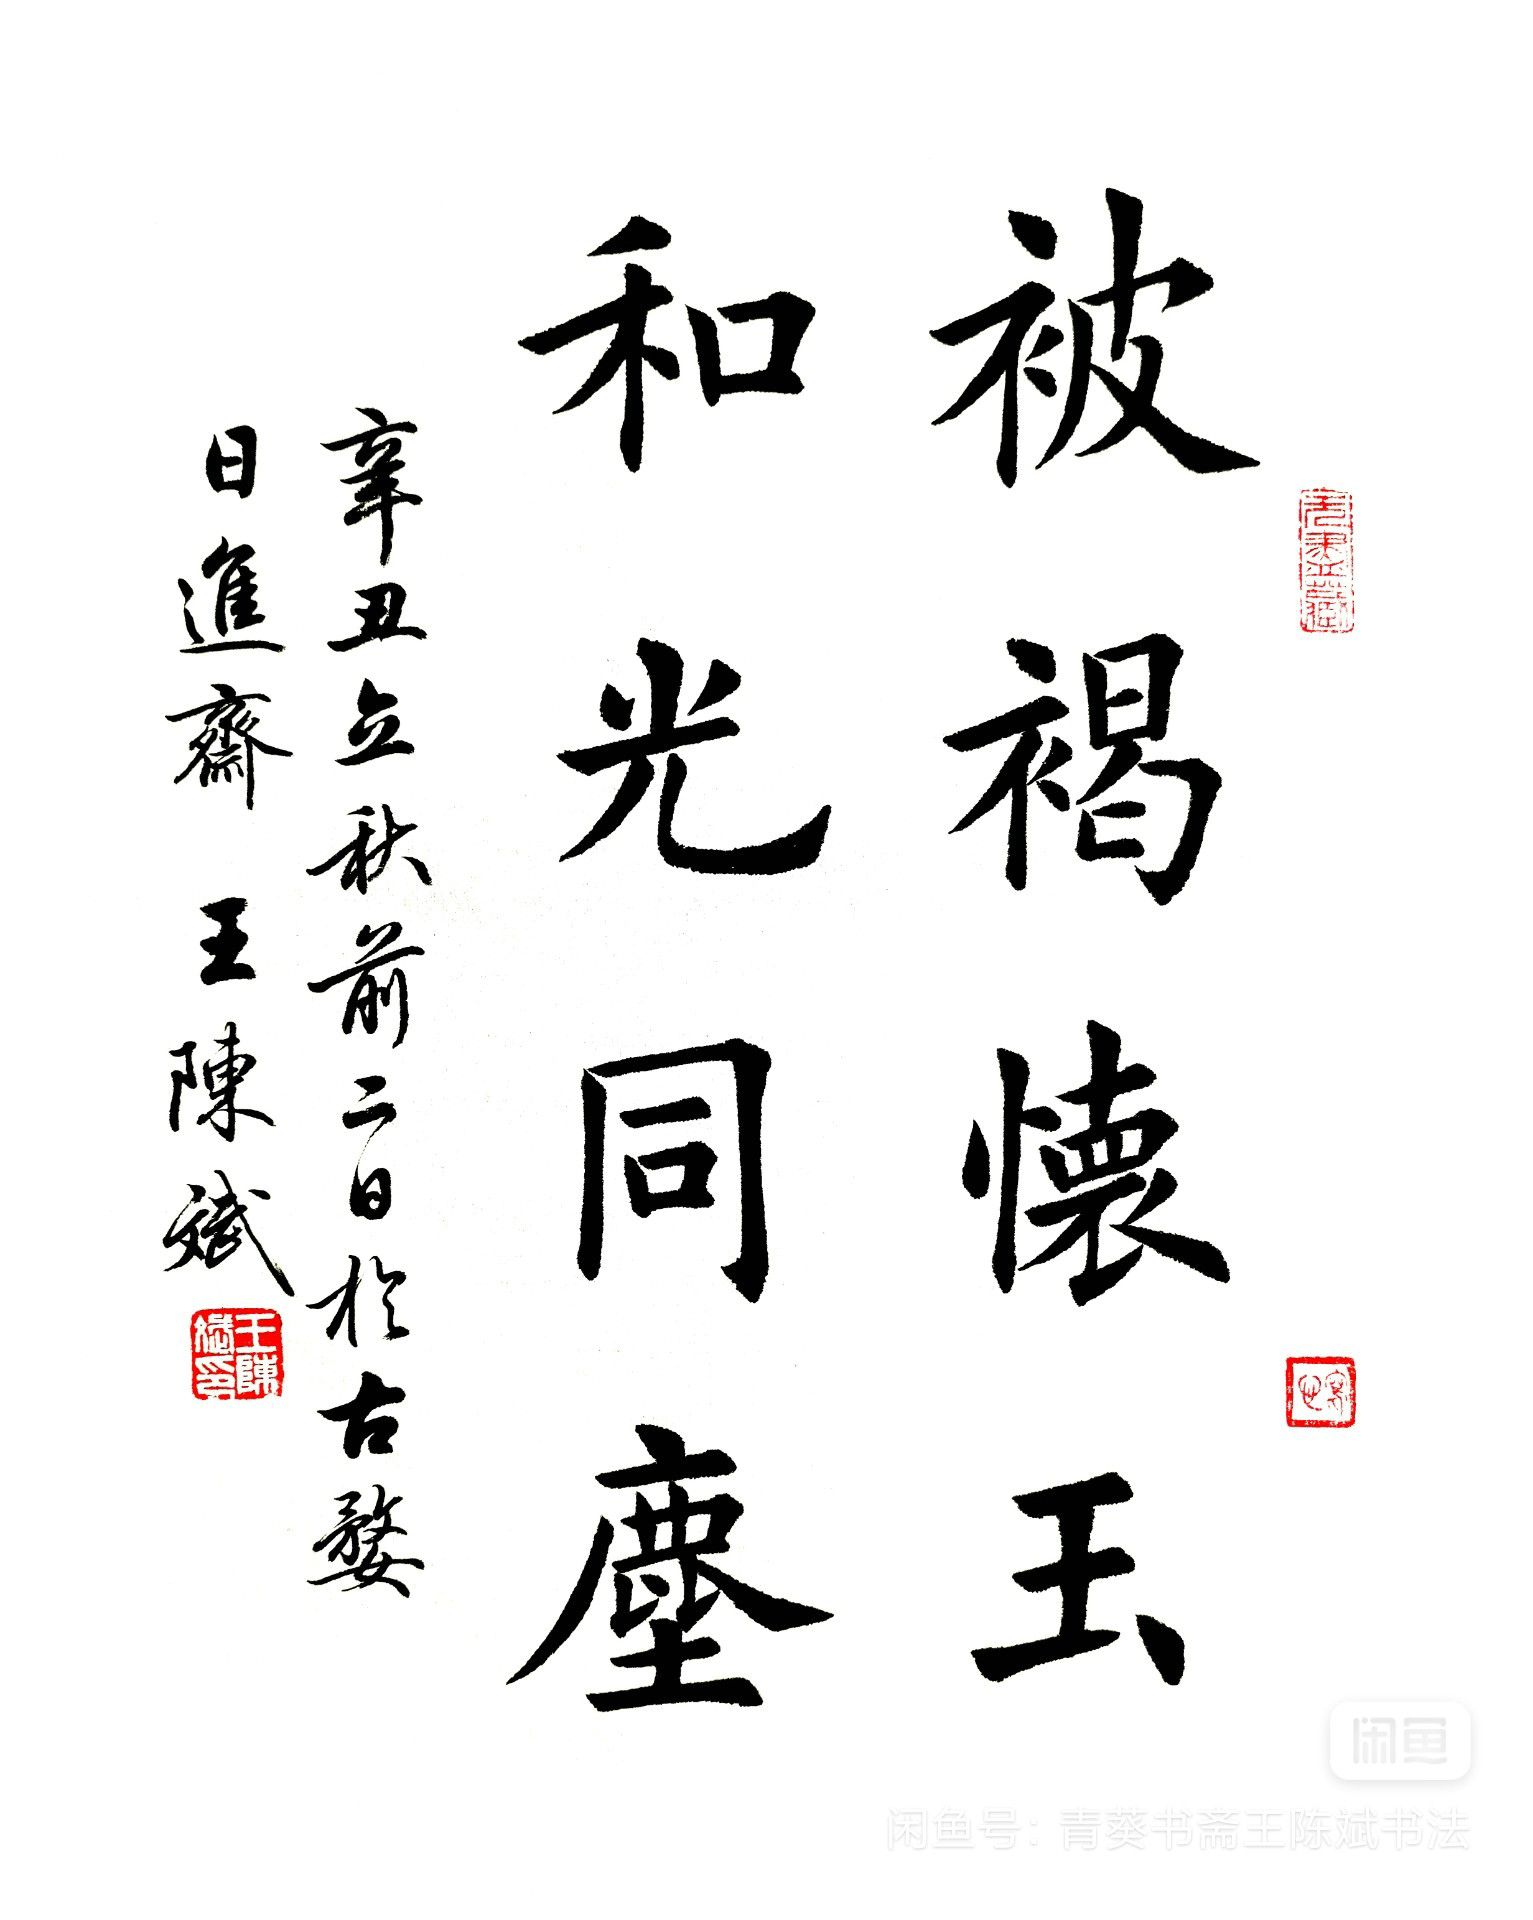 被褐懷玉
和光同塵
辛丑立秋前二日於古婺
日進齋 王陳斌
王陳斌印
闲鱼
闲鱼号：青葵书斋王陈斌书法